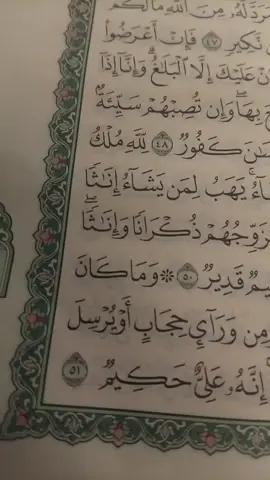 مَرَدَّ لَهُۥ مِنَ ٱللَّهِ مَا لَكُم
نَّكِيرٍ ٤٧ فَإِنْ أَعْرَضُوا۟
إِنْ عَلَيْكَ إِلَّا ٱلْبَلَٰغُ ۗ وَإِنَّآ إِذَآ
بِهَا ۖ وَإِن تُصِبْهُمْ سَيِّئَةٌۢ
كَفُورٌ ٤٨ لِّلَّهِ مُلْكُ
يَهَبُ لِمَن يَشَآءُ إِنَٰثًا
يُزَوِّجُهُمْ ذُكْرَانًا وَإِنَٰثًا ۖ
قَدِيرٌ ٥٠ ۞ وَمَا كَانَ
مِن وَرَآئِ حِجَابٍ أَوْ يُرْسِلَ
إِنَّهُۥ عَلِىٌّ حَكِيمٌ ٥١